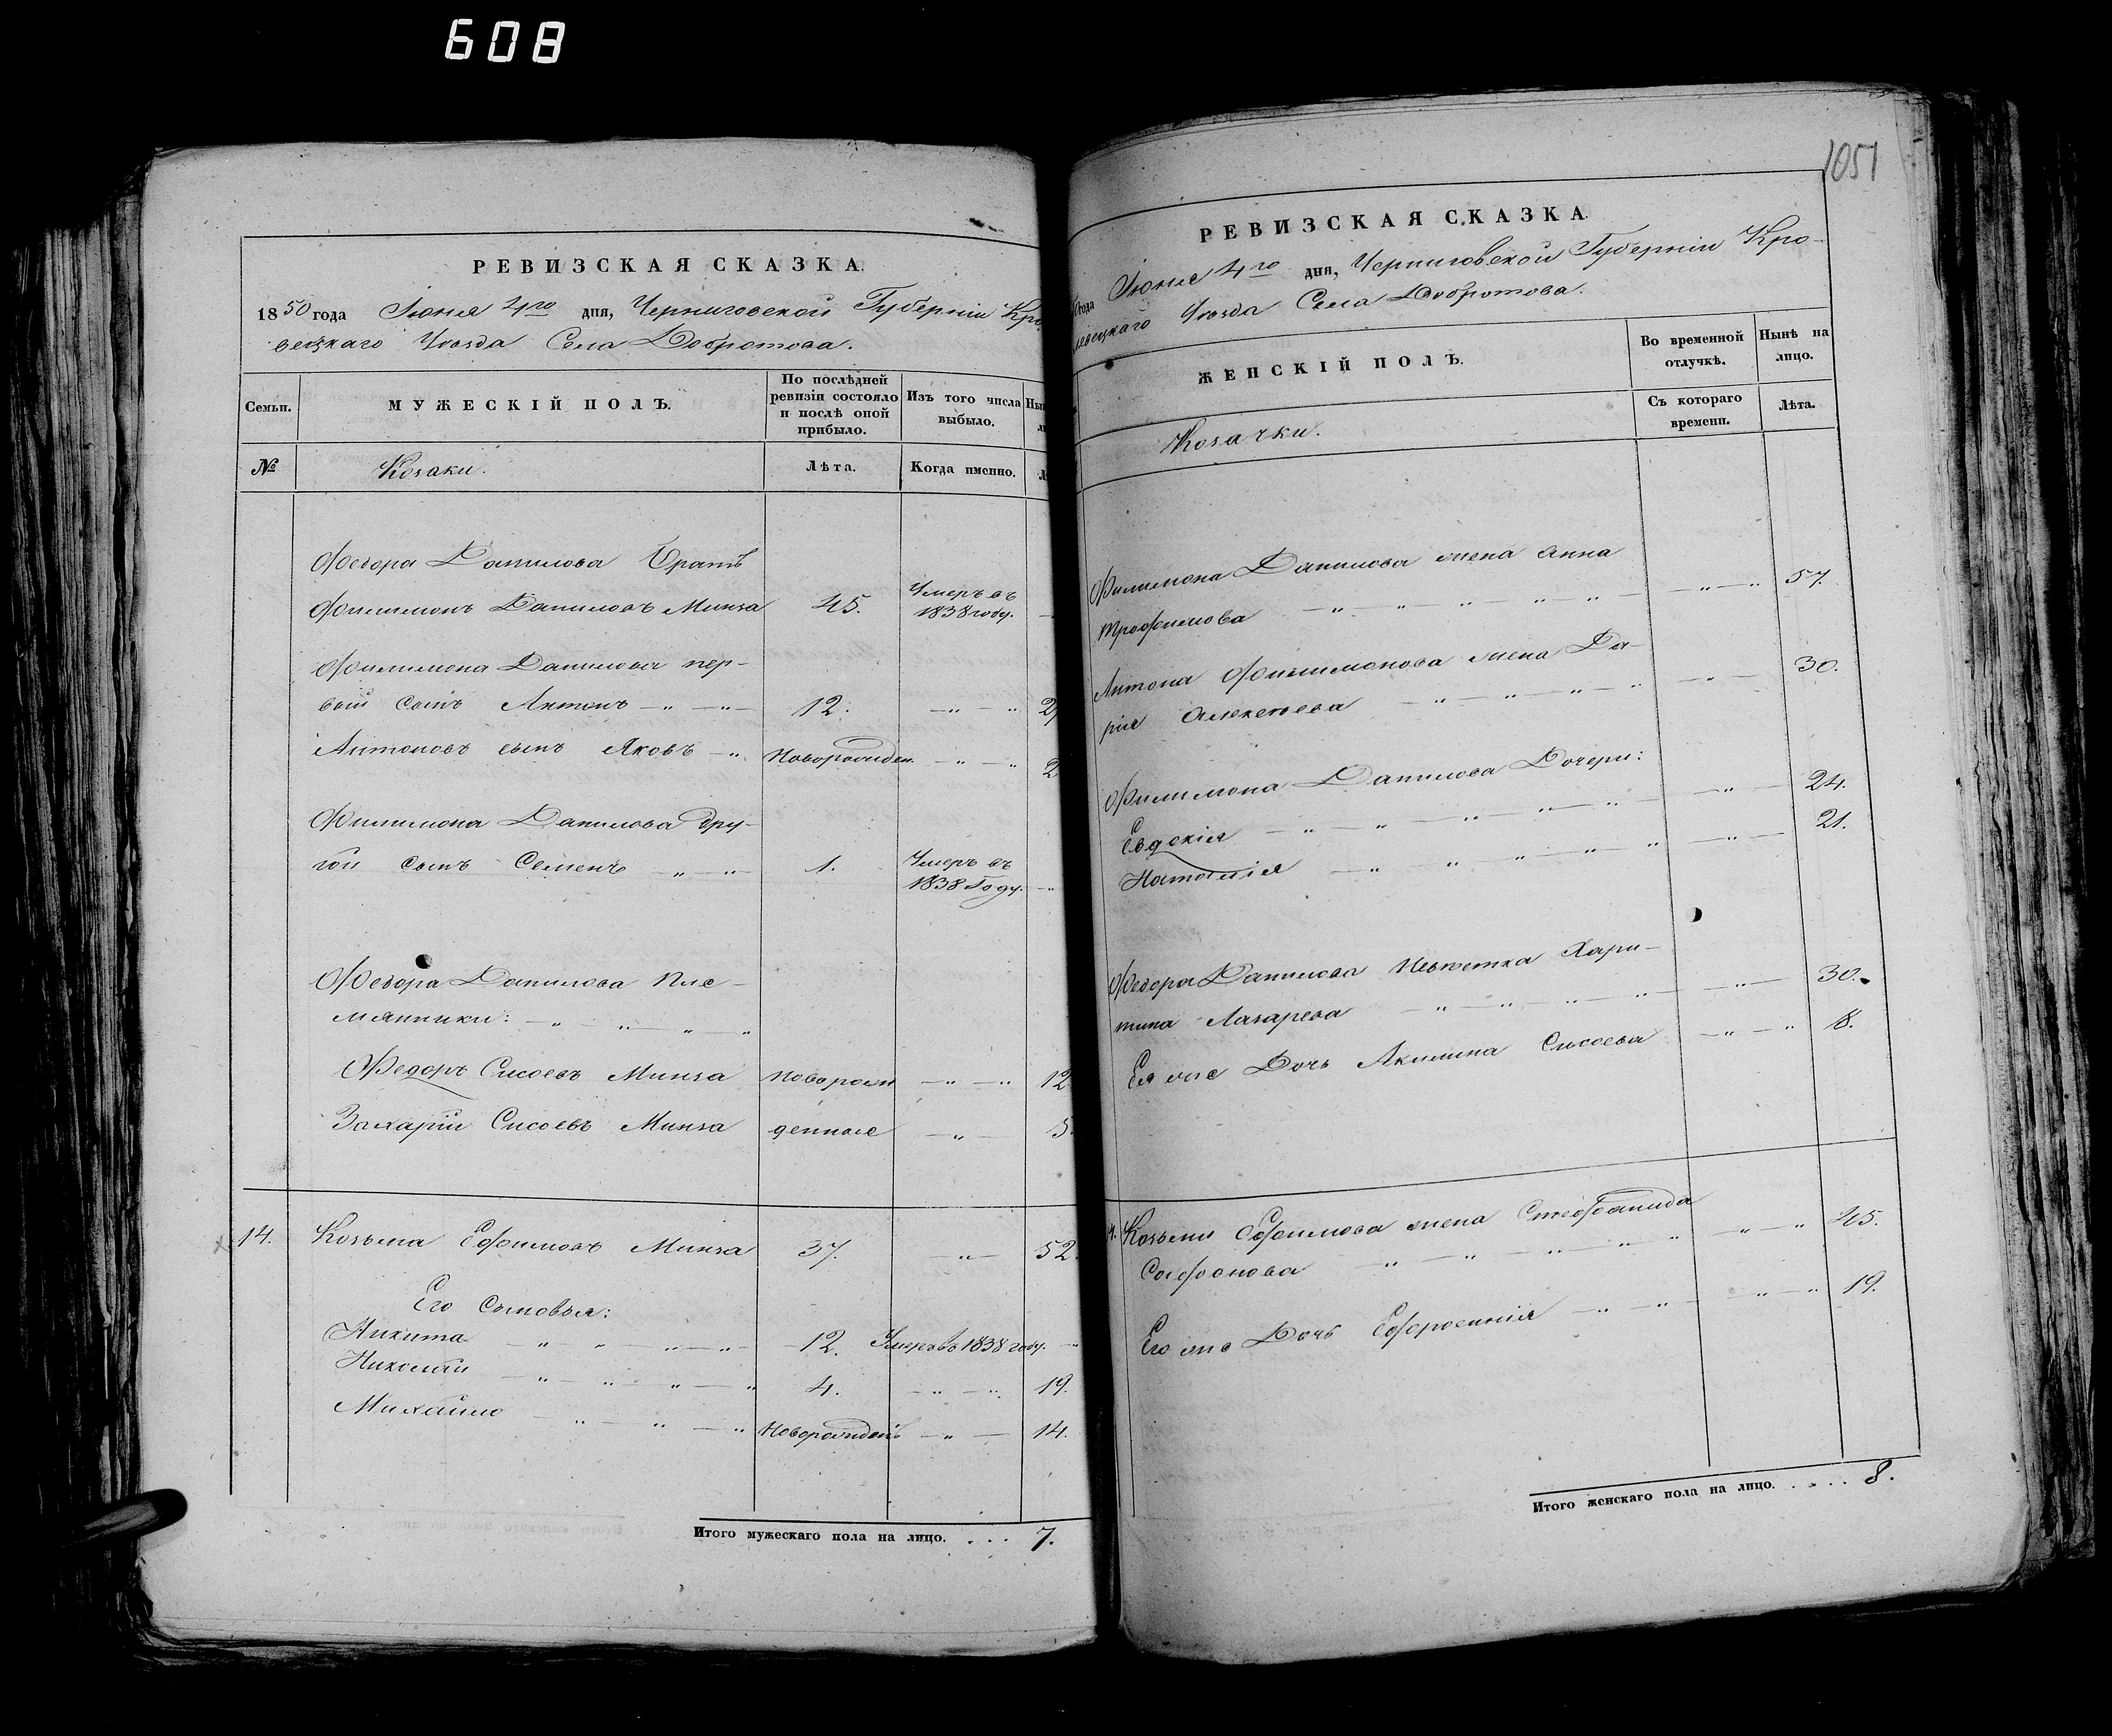 608
РЕВИЗСКАЯ СКАЗКА.
1850 года Іюня 4го дня, Черниговской Губерніи Кро
вецкаго Уѣзда Села Добротова.
Семьи.
МУЖЕСКІЙ ПОЛЪ.
По послѣдней
ревизіи состояло
и послѣ оной
прибыло.
Изъ того числа
выбыло.
№
Козаки.
Лѣта.
Когда именно.
Федора Данилова Братъ
Филимонъ Даниловъ Минза 45. Умеръ въ
1838 году.
Филимона Данилова пер-
вый сынъ Антонъ 12.
Антоновъ сынъ Яковъ Новорожден. 2
Филимона Данилова дру-
гой сынъ Семенъ 1. Умеръ въ
1838 Году.
Федора Данилова пле-
мянники:
Федоръ Сисоевъ Минза новорож 12
Захарій Сисоевъ Минза денные 5.
14. Козьма Ефимовъ Минза 37. 52.
Его Сыновья:
Никита 12. Умеръ въ 1838 году.
Николай 4. 19.
Михайло Новорожденъ 14.
Итого мужескаго пола на лицо. . . . 7.
1051
РЕВИЗСКАЯ СКАЗКА.
года Іюня 4го дня, Черниговской Губерніи Кро-
левецкаго Уѣзда Села Добротова.
ЖЕНСКІЙ ПОЛЪ.
Во временной
отлучкѣ.
Нынѣ на
лицо.
Съ котораго
времени.
Лѣта.
Козачки.
Филимона Данилова жена Анна
Трофимова 57.
Антона Филимонова жена Да-
рія Алексѣева 30.
Филимона Данилова Дочери:
Евдокія 24.
Наталія 21.
Федора Данилова Невѣстка Хари-
тина Лазарева 30.
Ея же Дочь Акилина Сисоева 8.
14. Козьмы Ефимова жена Стефанида
Сафонова 45.
Его же Дочь Ефросинія 19.
Итого женскаго пола на лицо. . . . . 8.